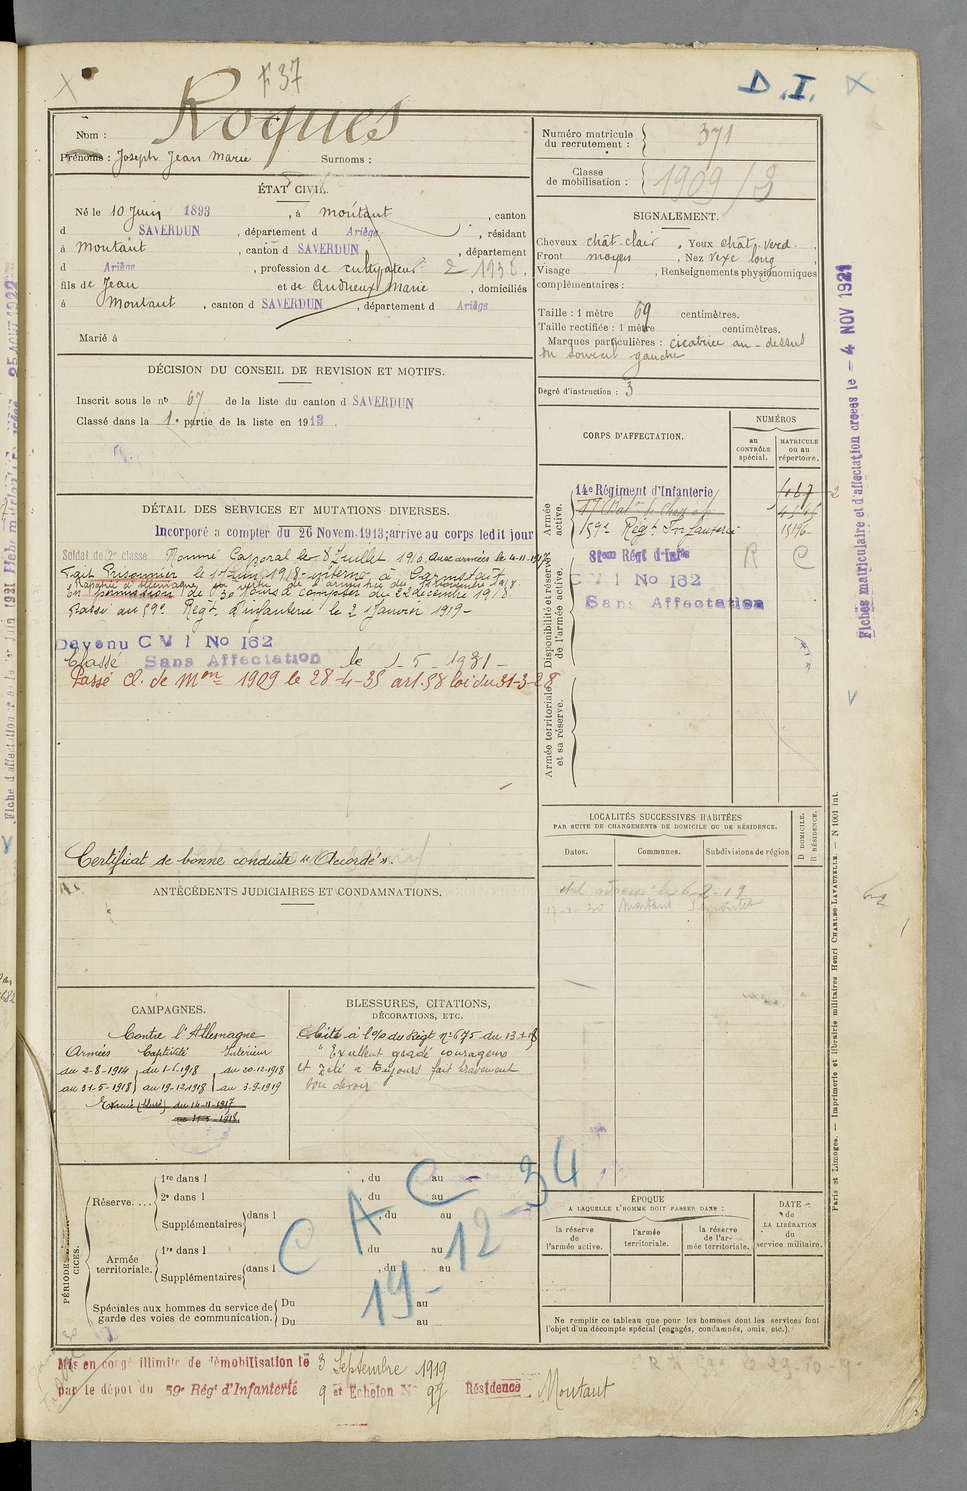 F 37
D.I.
Nom : Roques
Prénoms : Joseph Jean Marie Surnoms :
Numéro matricule du recrutement : 371
Classe de mobilisation : 1909/3
ÉTAT CIVIL.
Né le 10 Juin 1893, à Moutaut, canton
d SAVERDUN, département d Ariège, résidant
à Moutaut, canton d SAVERDUN, département
d Ariège, profession de cultivateur
fils de Jean et de Andrieux Marie, domiciliés
à Moutaut, canton d SAVERDUN, département d Ariège
Marié à
SIGNALEMENT.
Cheveux chât. clair, Yeux chât. verd.
Front moyen, Nez vexe long
Visage , Renseignements physionomiques
complémentaires :
Taille : 1 mètre 69 centimètres.
Taille rectifiée : 1 mètre centimètres.
Marques particulières : cicatrice au-dessus
du sourcil gauche
Degré d'instruction : 3
DÉCISION DU CONSEIL DE REVISION ET MOTIFS.
Inscrit sous le no 67 de la liste du canton d SAVERDUN
Classé dans la 1e partie de la liste en 1913.
DÉTAIL DES SERVICES ET MUTATIONS DIVERSES.
Incorporé a compter du 26 Novem. 1913; arrive au corps ledit jour
Soldat de 2e classe Nommé Caporal le 8 Juillet 1916 Aux armées le 4-11-1917
Fait Prisonnier le 1er Juin 1918 - interné à Darmstadt
Rapatrié d'Allemagne en vertu de l'armistice du
En permission de 30 jours à compter du 22 décembre 1918.
Passé au 59e Régt d'infanterie le 2 Janvier 1919-
Devenu C M I No 162
Classé Sans Affectation le 1-5-1931-
Passé cl. de Mon 1909 le 28-4-35 art. 58 loi du 31-3-28
Certificat de bonne conduite "Accordé".
CORPS D'AFFECTATION.
NUMÉROS
au CONTRÔLE spécial.
MATRICULE ou au répertoire.
Armée active.
14e Régiment d'Infanterie 467
159e Régt Infanterie
Disponibilité et réserve de l'armée active.
81eme Régt d'Infie R C
C M I No 162
Sans Affectation
Armée territoriale et sa réserve.
LOCALITÉS SUCCESSIVES HABITÉES
PAR SUITE DE CHANGEMENTS DE DOMICILE OU DE RÉSIDENCE.
Dates. Communes. Subdivisions de région
D DOMICILE. R RÉSIDENCE.
ANTÉCÉDENTS JUDICIAIRES ET CONDAMNATIONS.
CAMPAGNES.
Contre l'Allemagne
Armées Captivité Intérieur
du 2-8-1914 du 1-6-1918 du 20-12-1918
au 31-5-1918 au 19-12-1918 au 3-9-1919
du 14-11-1917
au 31-5-1918
BLESSURES, CITATIONS,
DÉCORATIONS, ETC.
Cité à l'O/ du Régt no 675 du 13-1-18
" Excellent gradé courageux
et zélé a toujours fait bravement
son devoir
PÉRIODES D'EXERCICES.
Réserve.... 1re dans l , du au
2e dans l , du au
Supplémentaires dans l , du au
Armée territoriale. 1re dans l du au
Supplémentaires dans l , du au
Spéciales aux hommes du service de garde des voies de communication. Du au
Du au
C A C
19-12-34
ÉPOQUE
A LAQUELLE L'HOMME DOIT PASSER DANS :
la réserve de l'armée active.
l'armée territoriale.
la réserve de l'armée territoriale.
DATE de LA LIBÉRATION du service militaire.
Ne remplir ce tableau que pour les hommes dont les services font
l'objet d'un décompte spécial (engagés, condamnés, omis, etc.).
Mis en congé illimité de démobilisation le 3 Septembre 1919
par le dépôt du 59e Régt d'Infanterie 9 et Echelon No 97 Résidence Moutaut
Fiches matriculaire et d'affectation créées le - 4 NOV 1921
Paris et Limoges. — Imprimerie et librairie militaires Henri CHARLES-LAVAUZELLE. — N 1001 int.